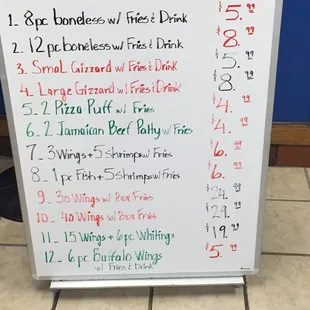 1_ 8pc boneless w/ Fries & Drink $5.99
2_ 12pc boneless w/ Fries & Drink $8.99
3_ Small Gizzard w/ Fries & Drink $5.99
4_ Large Gizzard w/ Fries & Drink $8.99
5_ 2 Pizza Puff w/ Fries $4.99
6_ 2 Jamaican Beef Patty w/ Fries $4.99
7_ 3 Wings + 5 shrimps w/ Fries $6.99
8_ 1pc Fish + 5 shrimps w/ Fries $6.99
9_ 30 Wings w/ Box Fries $24.99
10_ 40 Wings w/ Box Fries $29.99
11_ 15 Wings + 6pc Whitings $19.99
12_ 6pc Buffalo Wings $5.99
w/ Fries & Drink